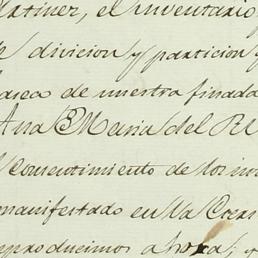 artinez, el inventario
de divicion y particion y
tarea de nuestra finada
Ana Maria del R
el Consentimiento de los
manifestado en la
producimos ahora; y